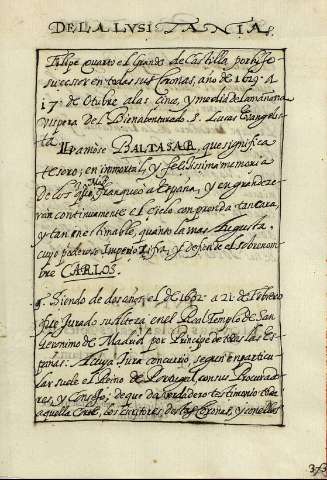 DE LA LVSITANIA.
Felipe quarto el Grande de Castilla por hijo
sucessor en todas sus Coronas, año de 1629. a
17. de Otubre a las cinco, y media de la mañana
vispera del Bienaventurado S. Lucas Evangelis-
ta.
Llamóse BALTASAR, que significa
tesoro; en inmortal, y felicissima memoria
de los que franqueò a España, y engrandeze-
ràn continuamente el Cielo con prenda tan cara,
y tan inestimable, quanto la mas Augusta.
cuyo poderoso Imperio cifra, y defiende el sobrenom-
bre CARLOS.
Siendo de dos años el de 1632. a 21 de Febrero
fue Jurado su Alteza en el Real Templo de San
Geronimo de Madrid por Principe de todas las Es-
pañas: A cuya Jura concurrio, segun en particu-
lar suele el Reino de Portugal, con sus Procurado-
res, y Consejo, de que da verdadero testimonio
aquella Corte, los escritores de las Coronas, y con ellos
373